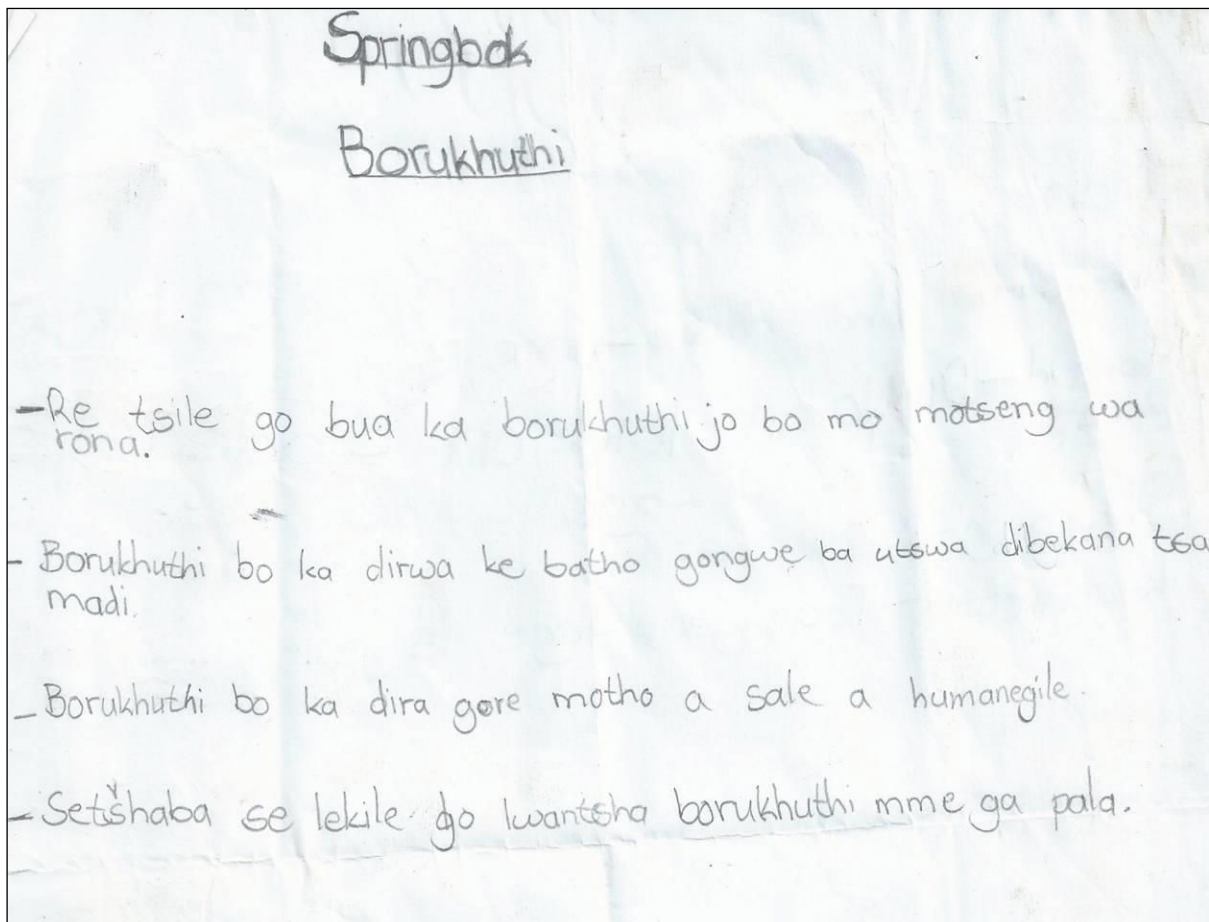 Springbok
Borukhuthi
-Re tsile go bua ka borukhuthi jo bo mo motseng wa
rona.
- Borukhuthi bo ka dirwa ke batho gongwe ba utswa dibekana tsa
madi.
- Borukhuthi bo ka dira gore motho a sale a humanegile.
- Setšhaba se lekile go lwantsha borukhuthi mme ga pala.